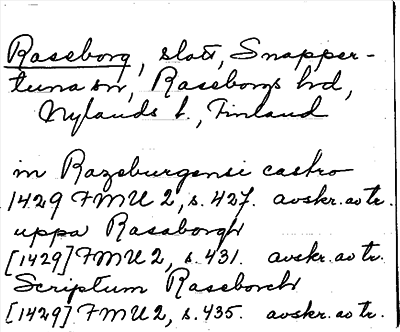 Raseborg, slott, Snapper-
tuna sn, Raseborgs hd,
Nylands l., Finland
in Razeburgensi castro
1429 FMU 2, s. 427. avskr. av tr.
uppa Rasaborgh
[1429] FMU 2, s. 431. avskr. av tr.
Scriptum Raseborch
[1429] FMU 2, s. 435. avskr. av tr.